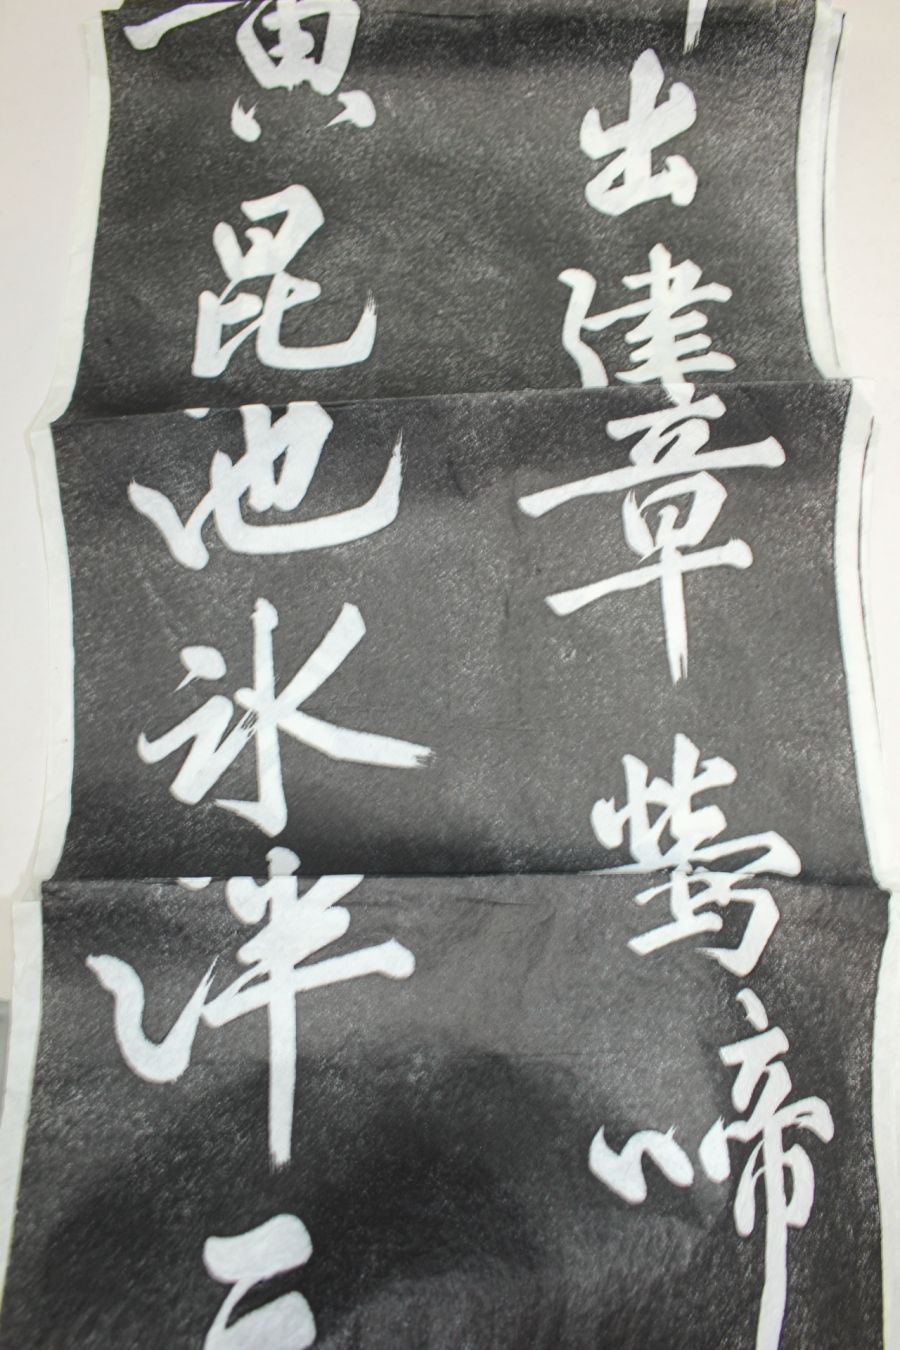 出建章鶯啼
黄昆池冰泮